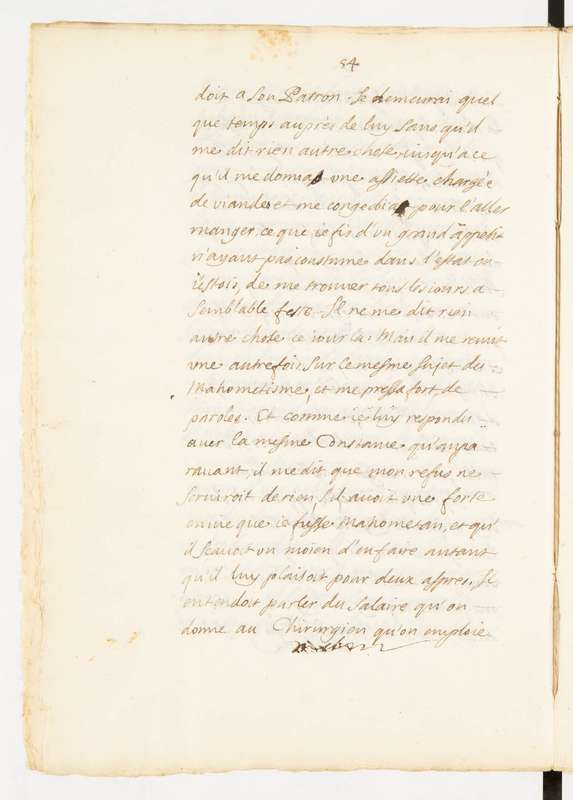 54
doit a son Patron. Je demeurai quel
que temps aupres de luy sans qu'il
me dit rien autre chose, jusqu'a ce
qu'il me donna une assiette chargée
de viande et me congedia pour l'aller
manger, ce que je fis d'un grand appetit
n'ayant pas coustume dans l'estat ou
j'estois, de me trouver tous les jours a
semblable feste. Il ne me dit rien
autre chose ce jour la. Mais il me revit
une autre fois sur le mesme sujet du
Mahometisme, et me pressa fort de
paroles. Et comme je luy respondis
avec la mesme Constance qu'aupa
ravant, il me dit que mon refus ne
serviroit de rien, s'il avoit une forte
envie que je fusse Mahometan, et qu'
il scavoit un moien d'en faire autant
qu'il luy plaisoit pour deux aspres. Il
entendoit parler du salaire qu'on
donne au Chirurgien qu'on emploie